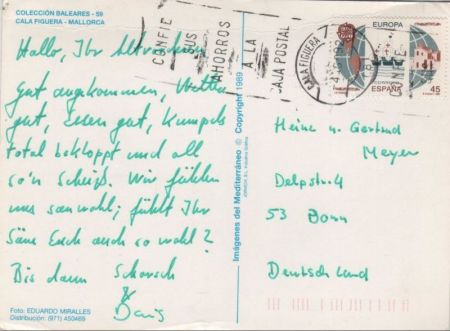 COLECCIÓN BALEARES - 59
CALA FIGUERA - MALLORCA
Hallo, Ihr Altrocker,
gut angekommen, Wetter
gut, Essen gut, Kumpels
total bekloppt und all
so'n Scheiß. Wir fühlen
uns sauwohl; fühlt Ihr
Säue Euch auch so wohl?
Bis dann Schorsch
&
Doris
Foto: EDUARDO MIRALLES
Distribución: (971) 450465
Imágenes del Mediterráneo © Copyright 1989
CONFIE
SUS
AHORROS
A LA
CAJA POSTAL
CALA FIGUERA
CONFIE
EUROPA
ESPAÑA
45
Heinz u. Gertrud
Meyer
Delpstr. 4
53 Bonn
Deutschland